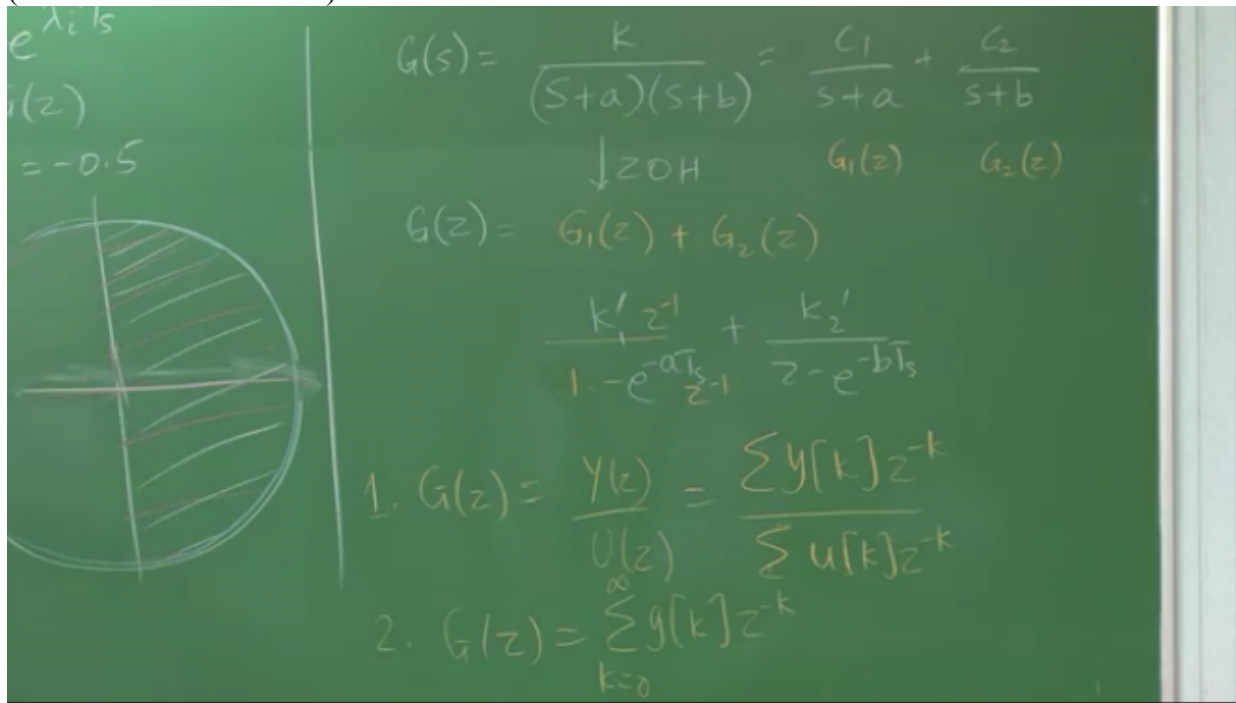 e^{λ_i T_s}
(z)
= -0.5
G(s) = K / (S+a)(s+b) = C_1 / s+a + C_2 / s+b
↓ ZOH G_1(z) G_2(z)
G(z) = G_1(z) + G_2(z)
k_1' z^{-1} / 1 - e^{-aT_s} z^{-1} + k_2' / z - e^{-bT_s}
1. G(z) = Y(z) / U(z) = Σ y[k] z^{-k} / Σ u[k] z^{-k}
2. G(z) = Σ_{k=0}^{∞} g[k] z^{-k}